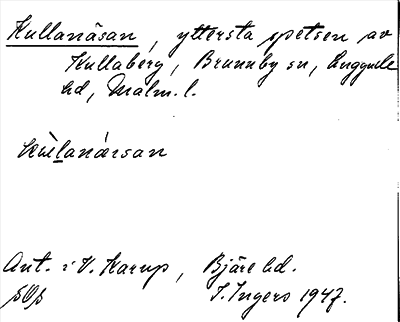 Kullanäsan, yttersta spetsen av
Kullaberg, Brunnby sn, Luggude
hd, Malm. l.
Ant. i V. Karup, Bjäre hd.
I. Ingers 1947.